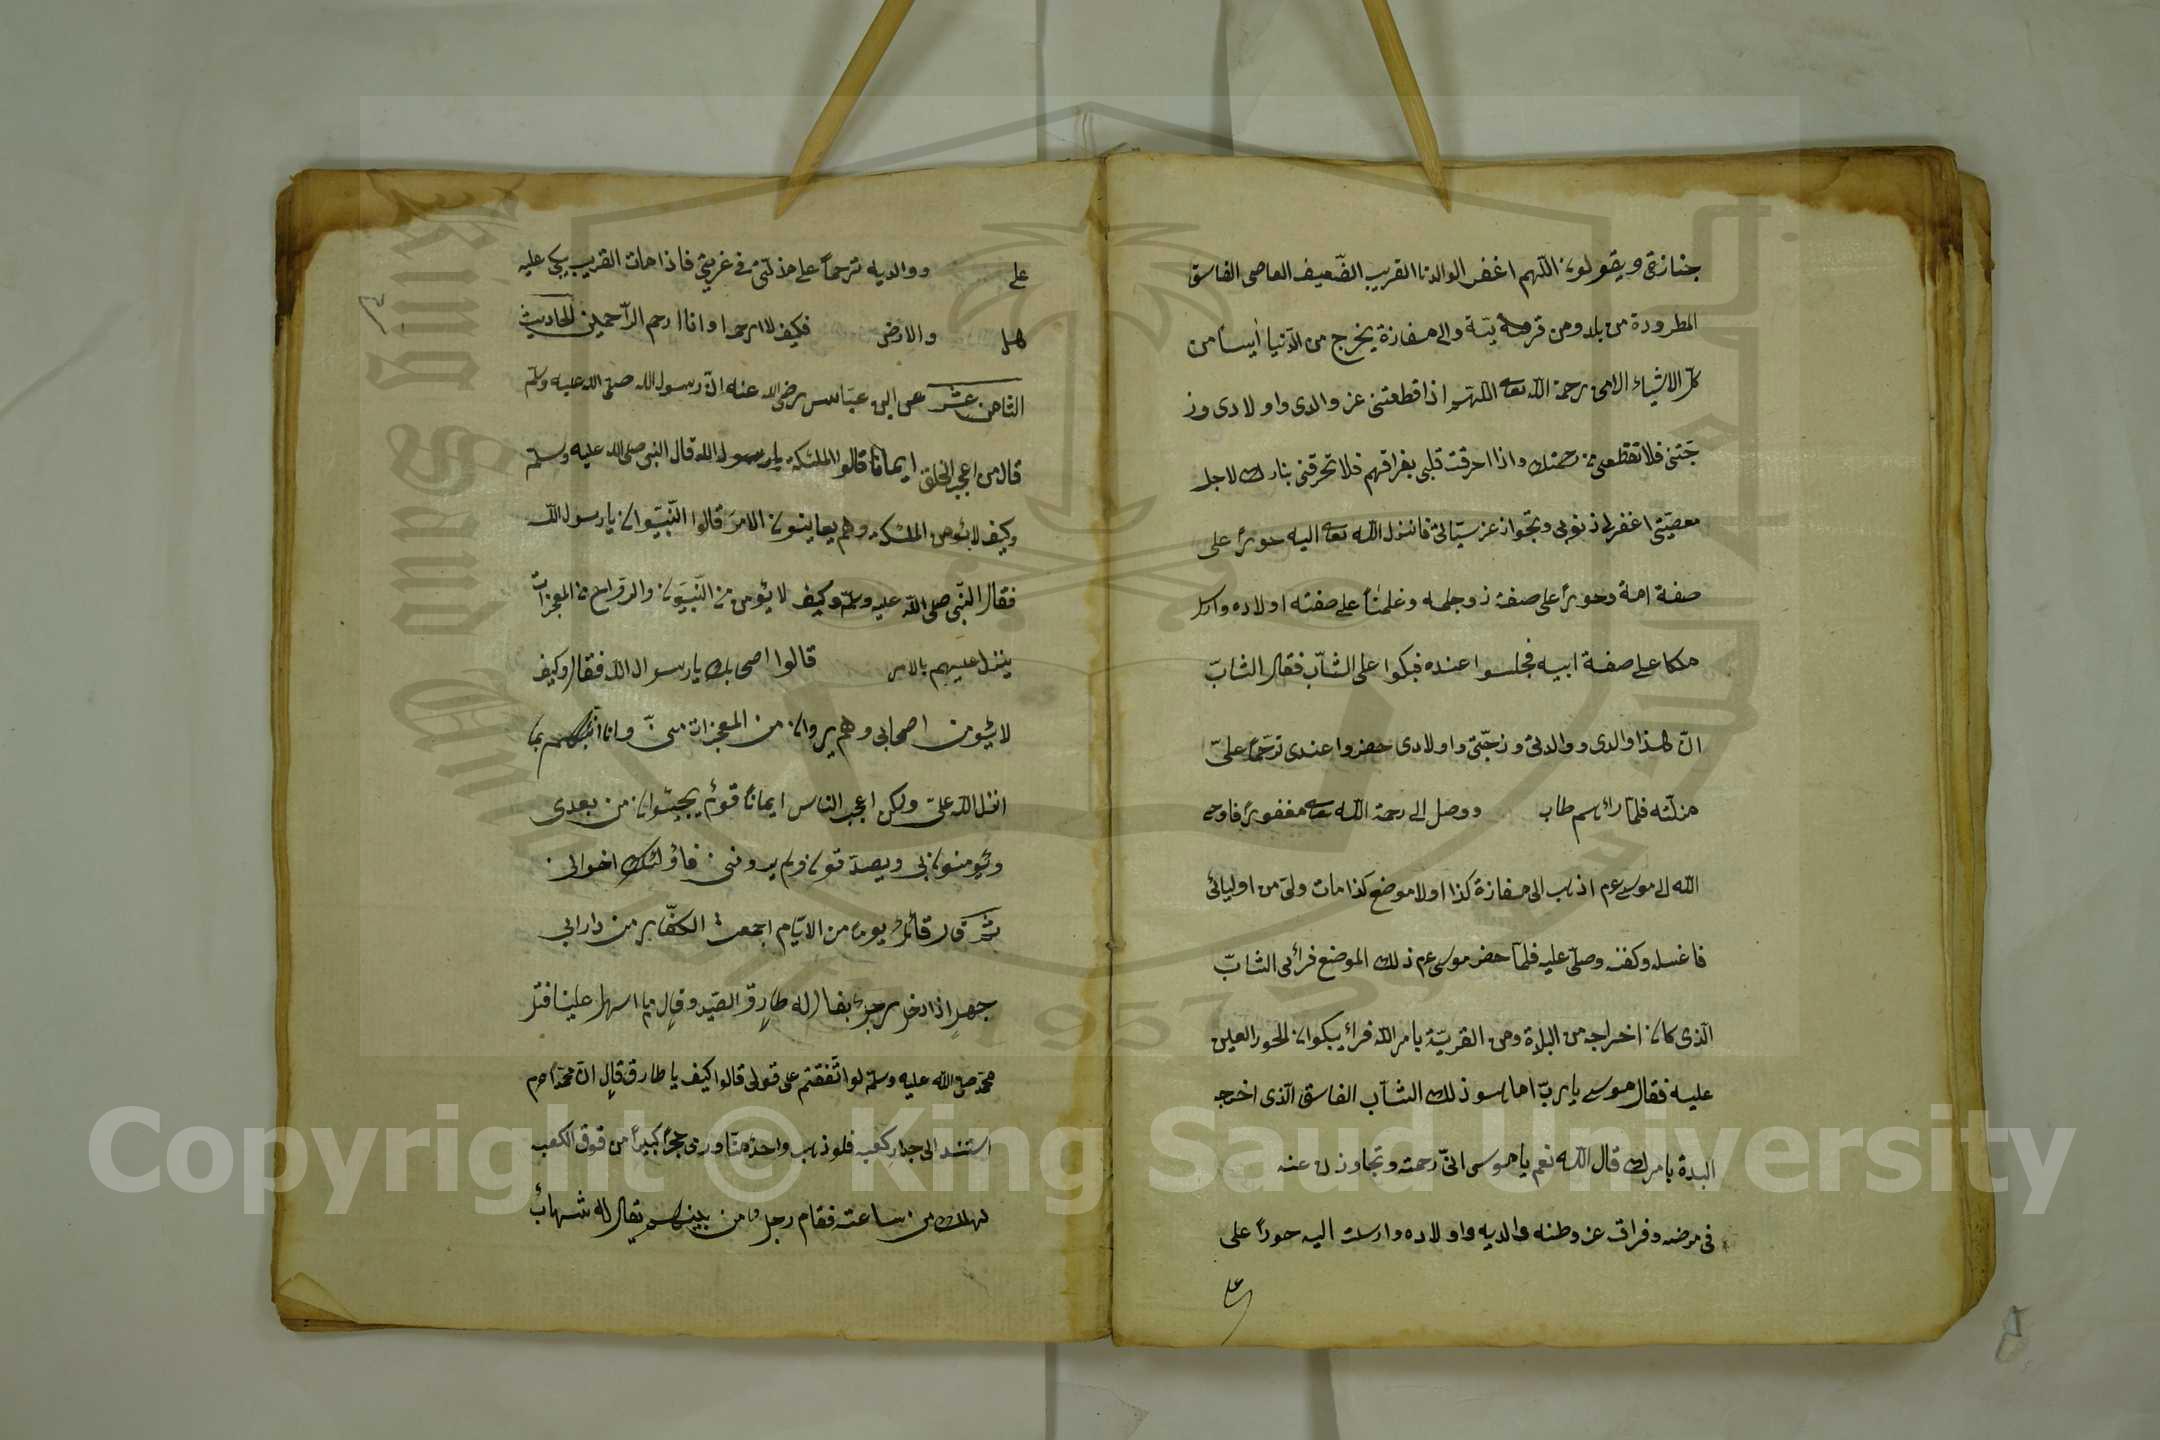 جنازتى ويقولون اللهم اغفر لوالدنا القريب الضّعيف العاصى الفاسق
المطرودة من بلد ومن قرية والى مفازة يخرج من الدّنيا أيساً من
كلّ الاشياء الامن رحمة الله تعالى اللهم اذا قطعتنى عن والدى واولادى وز
جتى فلا تقطعنى من رحمتك واذا احرقت قلبى بفراقهم فلا تحرقنى بنارك لاجل
معصيتى اغفرلى ذنوبى وتجواز عن سيّاتى فانزل الله تعالى اليه حوراً على
صفة امه وحوراً على صفة زوجته وغلماناً على صفته اولاده وارسل
ملكا على صفة ابيه فجلسوا عنده فبكوا على الشّابّ فقال الشابّ
انّ هذا والدى ووالدتى وزجتى واولادى حضروا عندى ترحّماً علىّ
منلته فلمّا رائهم طاب ووصل الى رحمة الله تعالى مغفوراً فاوحى
الله الى موسى عم اذهب الى مفازة كذا اولا موضع كذا مات ولىّ من اوليائى
فاغسله وكفنه وصلّى عليه فلمّا حضر موسى عم ذلك الموضع فرائى الشابّ
الّذى كان اخراجه من البلدة ومن القريّة بامر الله فرأ يبكون الحور العين
عليه فقال موسى يا ربّ اما هو ذلك الشابّ الفاسق الّذى اخرجه
البدة بامرك قال الله نعم يا موسى انّى رحمته وتجاوزت عنه
فى مرضه وفراق عن وطنه والديه واولاده وارسلت اليه حوراً على
على
على ووالديه ترحماً على مذلّتى فى غربتى فاذا مات القريب يبكى عليه
اهل والارض فكيف لا ارحم وانا ارحم الرّاحمين الحاديث
الثامن عشر عن ابن عبّاس رضى الله عنه انّ رسول الله صلى الله عليه وسلم
قال من اعجب الخلق ايماناً قالوا الملئكة يا رسول الله قال النبى صلى الله عليه وسلم
وكيف لا يؤمن الملئكة وهم يعاينون الامر قالوا النّبيّون يا رسول الله
فقال النّبى صلى الله عليه وسلم وكيف لا يؤمن من النّبيّون والرّوح من المعجزات
ينزل عليهم بالامر قالوا اصحابك يا رسول الله فقال وكيف
لا يؤمن اصحابى وهم يروان من المعجزات منّى وانا انبئهم بما
انزل الله علىّ ولكن اعجب الناس ايماناً قومٌ يجيئون من بعدى
ويؤمنون بى ويصدّقون ولم يرونى فأولئك اخوانى
ثم قال قائل يوما من الايّام اجمعت الكفّار من دار ابى
جهل اذا دخل رجل يقال له طارق الصّيد وقال ما اسهل علينا قتل
محمّد صلى الله عليه وسلم لو اتّفقتم على قولى قالوا كيف يا طارق قال انّ محمّدا عم
استند الى جدار كعبه فلو ذهب واحد منّا ورمى حجراً كبيراً من فوق الكعبة
لهلك من ساعته فقام رجل من بينهم يقال له شهاب
Copyright © King Saud University
1957